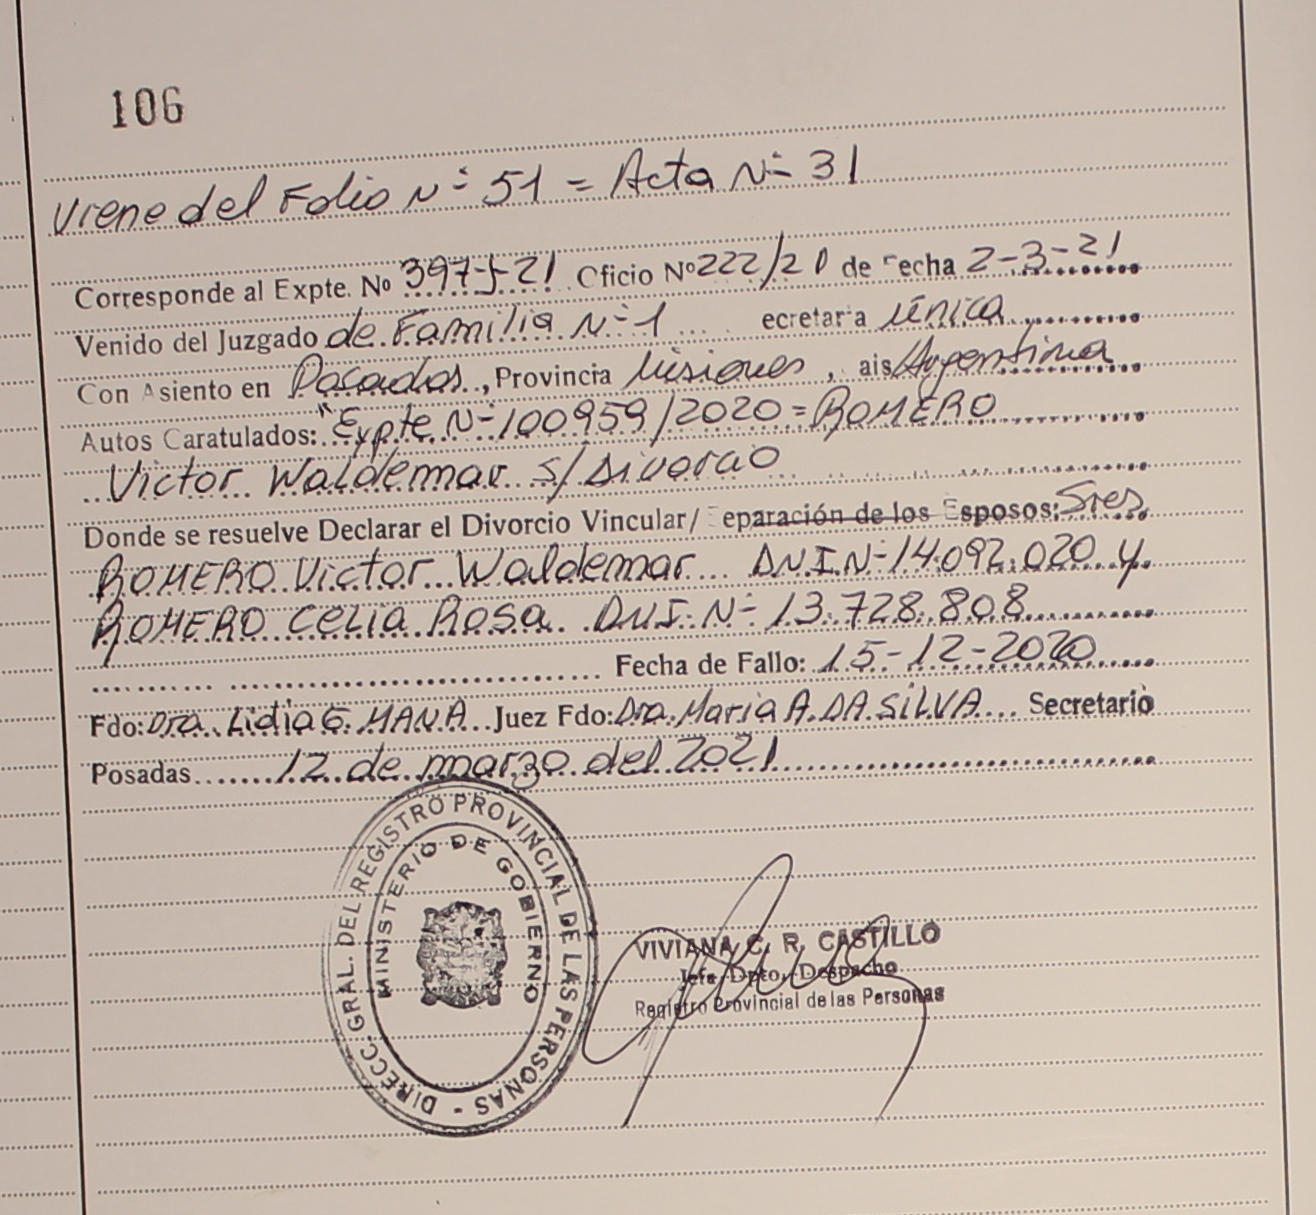 106
Viene del Folio Nº 51 = Acta Nº 31
Corresponde al Expte. Nº 397-J-21 Oficio Nº 222/21 de Fecha 2-3-21
Venido del Juzgado de Familia Nº 1 ecretar a única
Con Asiento en Posadas, Provincia Misiones, ais Argentina
Autos Caratulados: "Expte Nº 100959/2020 = ROMERO
Victor Waldemar s/ Divorcio
Donde se resuelve Declarar el Divorcio Vincular/ eparación de los Esposos: Sres
ROMERO Victor Waldemar D.N.I. Nº 14.092.020 y
ROMERO Celia Rosa DNI. Nº 13.728.808
Fecha de Fallo: 15-12-2020
Fdo: Dra. Lidia G. MANA Juez Fdo: Dra. Maria A. DA SILVA Secretario
Posadas 12 de marzo del 2021
DIRECC. GRAL. DEL REGISTRO PROVINCIAL DE LAS PERSONAS -
MINISTERIO DE GOBIERNO
VIVIANA C. R. CASTILLO
Jefa Dpto. Despacho
Registro Provincial de las Personas